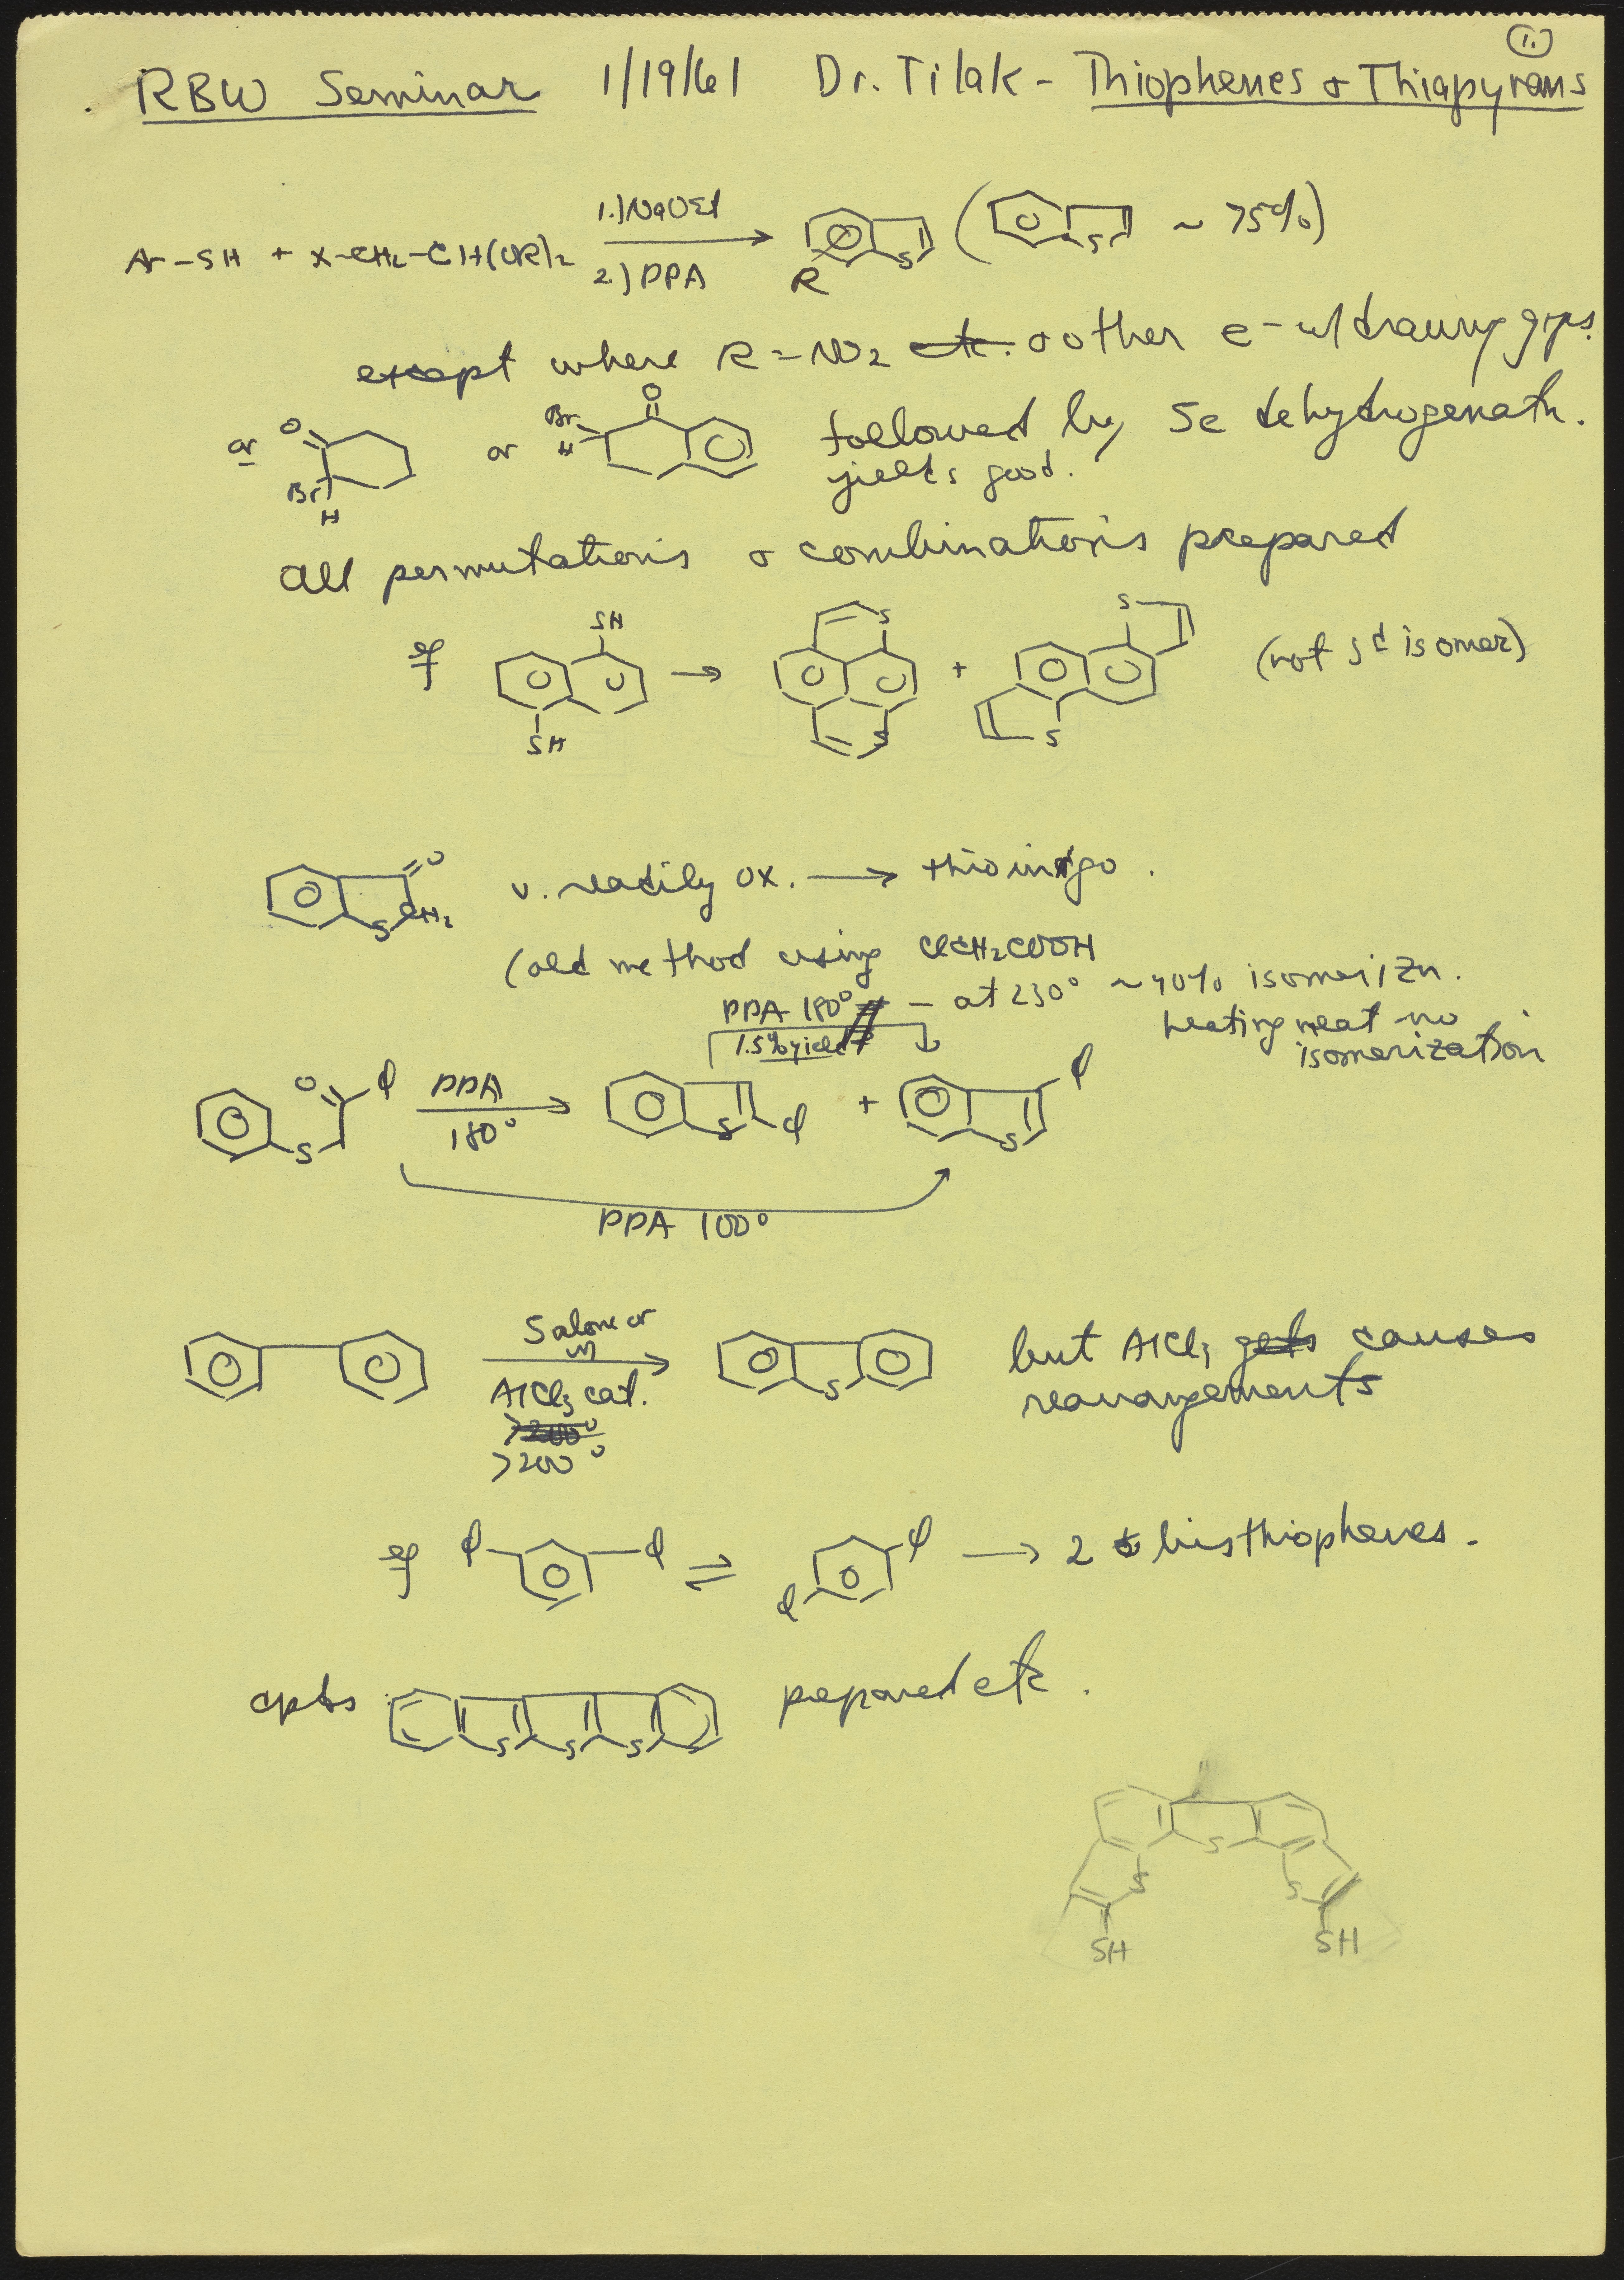 1.
RBW Seminar 1/19/61 Dr. Tilak - Thiophenes & Thiapyrans
1.) NaOEt
Ar-SH + X-CH2-CH(OR)2 → S R ( S ~ 75%)
2.) PPA
except where R = NO2 etc. & other e- w/drawing gps.
or O Br H or Br H O followed by Se dehydrogenatn.
yields good.
all permutations & combinations prepared
eg SH SH → S S + S S (not 3d isomer)
O S CH2 v. readily ox. → thioindigo.
(old method using ClCH2COOH
PPA 180° - at 230° ~40% isomerizn.
1.5% yield heating neat no
isomerization
O φ S PPA 180° → S φ + S φ
PPA 100°
S alone or
AlCl3 cat. → S but AlCl3 gets causes
rearrangements
>200°
>200°
eg φ φ ⇌ φ φ → 2 bisthiophenes.
cpds S S S prepared etc.
S
S S
SH SH